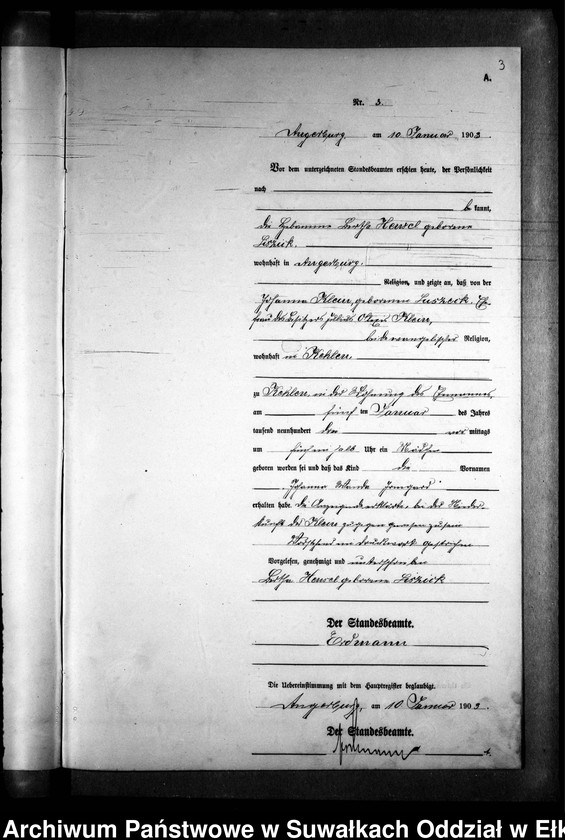 3
A.
Nr. 3.
Angerburg am 10 Januar 1903
Vor dem unterzeichneten Standesbeamten erschien heute, der Persönlichkeit
nach
be kannt,
die Hebamme Bertha Hensel geborene
wohnhaft in Angerburg.
Religion, und zeigte an, daß von der
Johanna Klein, geborenen Ehe
frau des Besitzers Julius Klein,
beide evangelischer Religion,
wohnhaft in Kehlen,
zu Kehlen, in der Wohnung des Ehemannes,
am fünf ten Januar des Jahres
tausend neunhundert drei vor mittags
um halb Uhr ein Mädchen
geboren worden sei und daß das Kind die Vornamen
Johanna Wanda Irmgard
erhalten habe. Die Anzeigende erklärte, bei der Nieder
kunft der Klein zugegen gewesen zu sein
Vorstehend ein Druckwort gestrichen
Vorgelesen, genehmigt und unterschrieben
Bertha Hensel geborene
Der Standesbeamte.
Erdmann
Die Uebereinstimmung mit dem Hauptregister beglaubigt.
Angerburg, am 10 Januar 1903
Der Standesbeamte.
Erdmann
Archiwum Państwowe w Suwałkach Oddział w Ełk